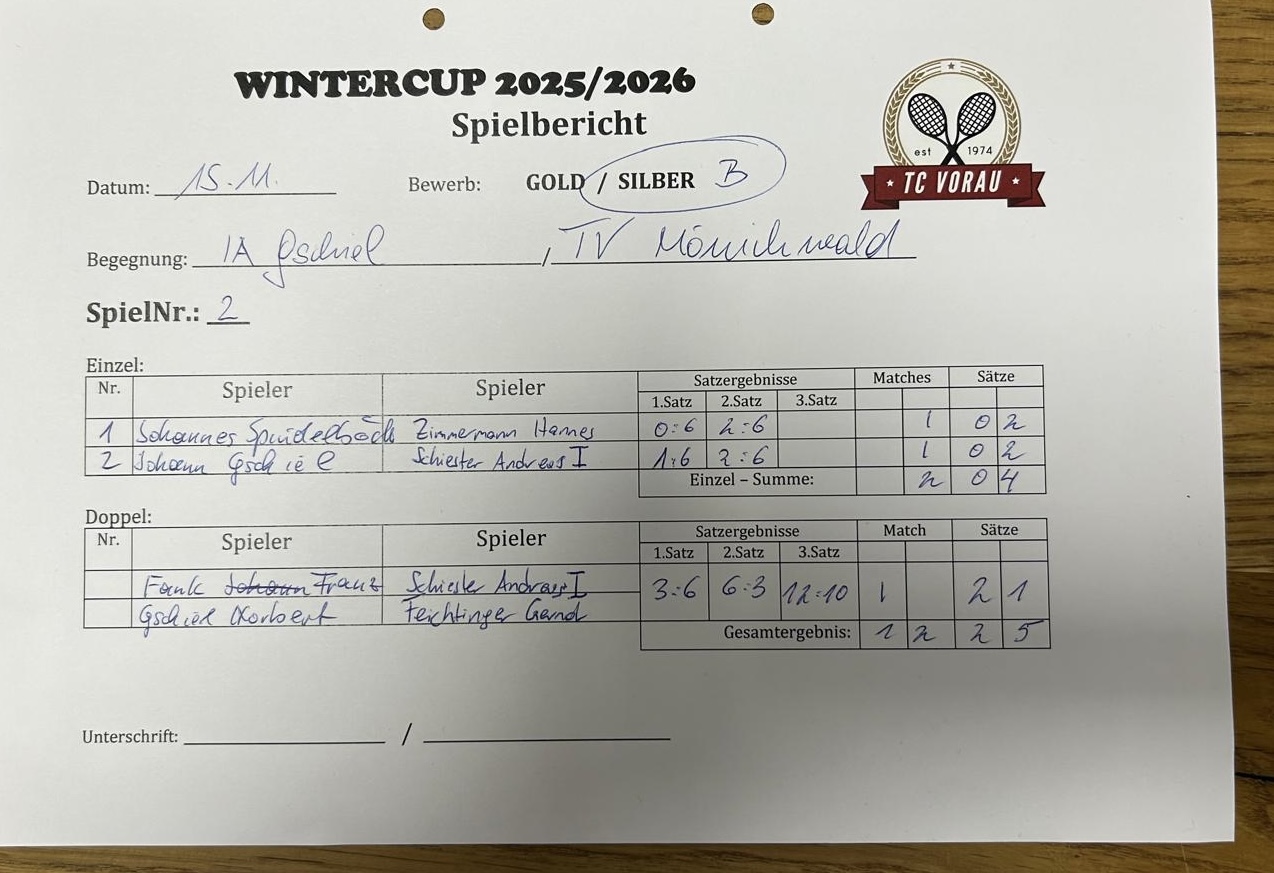 WINTERCUP 2025/2026
Spielbericht
est 1974
TC VORAU
Datum: 15.11. Bewerb: GOLD / SILBER B
Begegnung: IA Gschiel , TV Mönichwald
SpielNr.: 2
Einzel:
Nr. Spieler Spieler Satzergebnisse Matches Sätze
1.Satz 2.Satz 3.Satz
1 Johannes Zimmermann Hannes 0:6 2:6 1 0 2
2 Johann Gschiel Schiester Andreas I 1:6 2:6 1 0 2
Einzel – Summe: 2 0 4
Doppel:
Nr. Spieler Spieler Satzergebnisse Match Sätze
1.Satz 2.Satz 3.Satz
Fank Johann Franz Schiester Andreas I 3:6 6:3 12:10 1 2 1
Gschiel Norbert Feichtinger Gernot
Gesamtergebnis: 1 2 2 5
Unterschrift: /